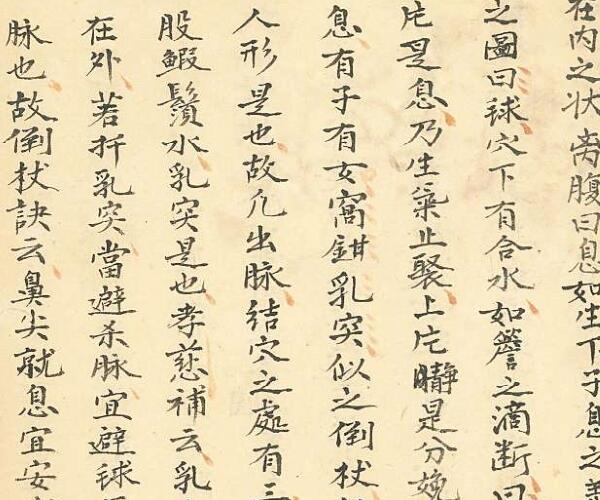 在内之状离腹曰息如生下子息之
之圖曰毬穴下有合水如簷之滴断曰
片是息乃生氣止聚上片疇是分娩
息有子有女窩鉗乳突似之倒杖
人形是也故凢出脉结穴之處有三
股鰕鬚水乳突是也孝慈補云乳
在外若扦乳突當避杀脉宜避毬
脉也故倒杖訣云鼻尖就息宜安